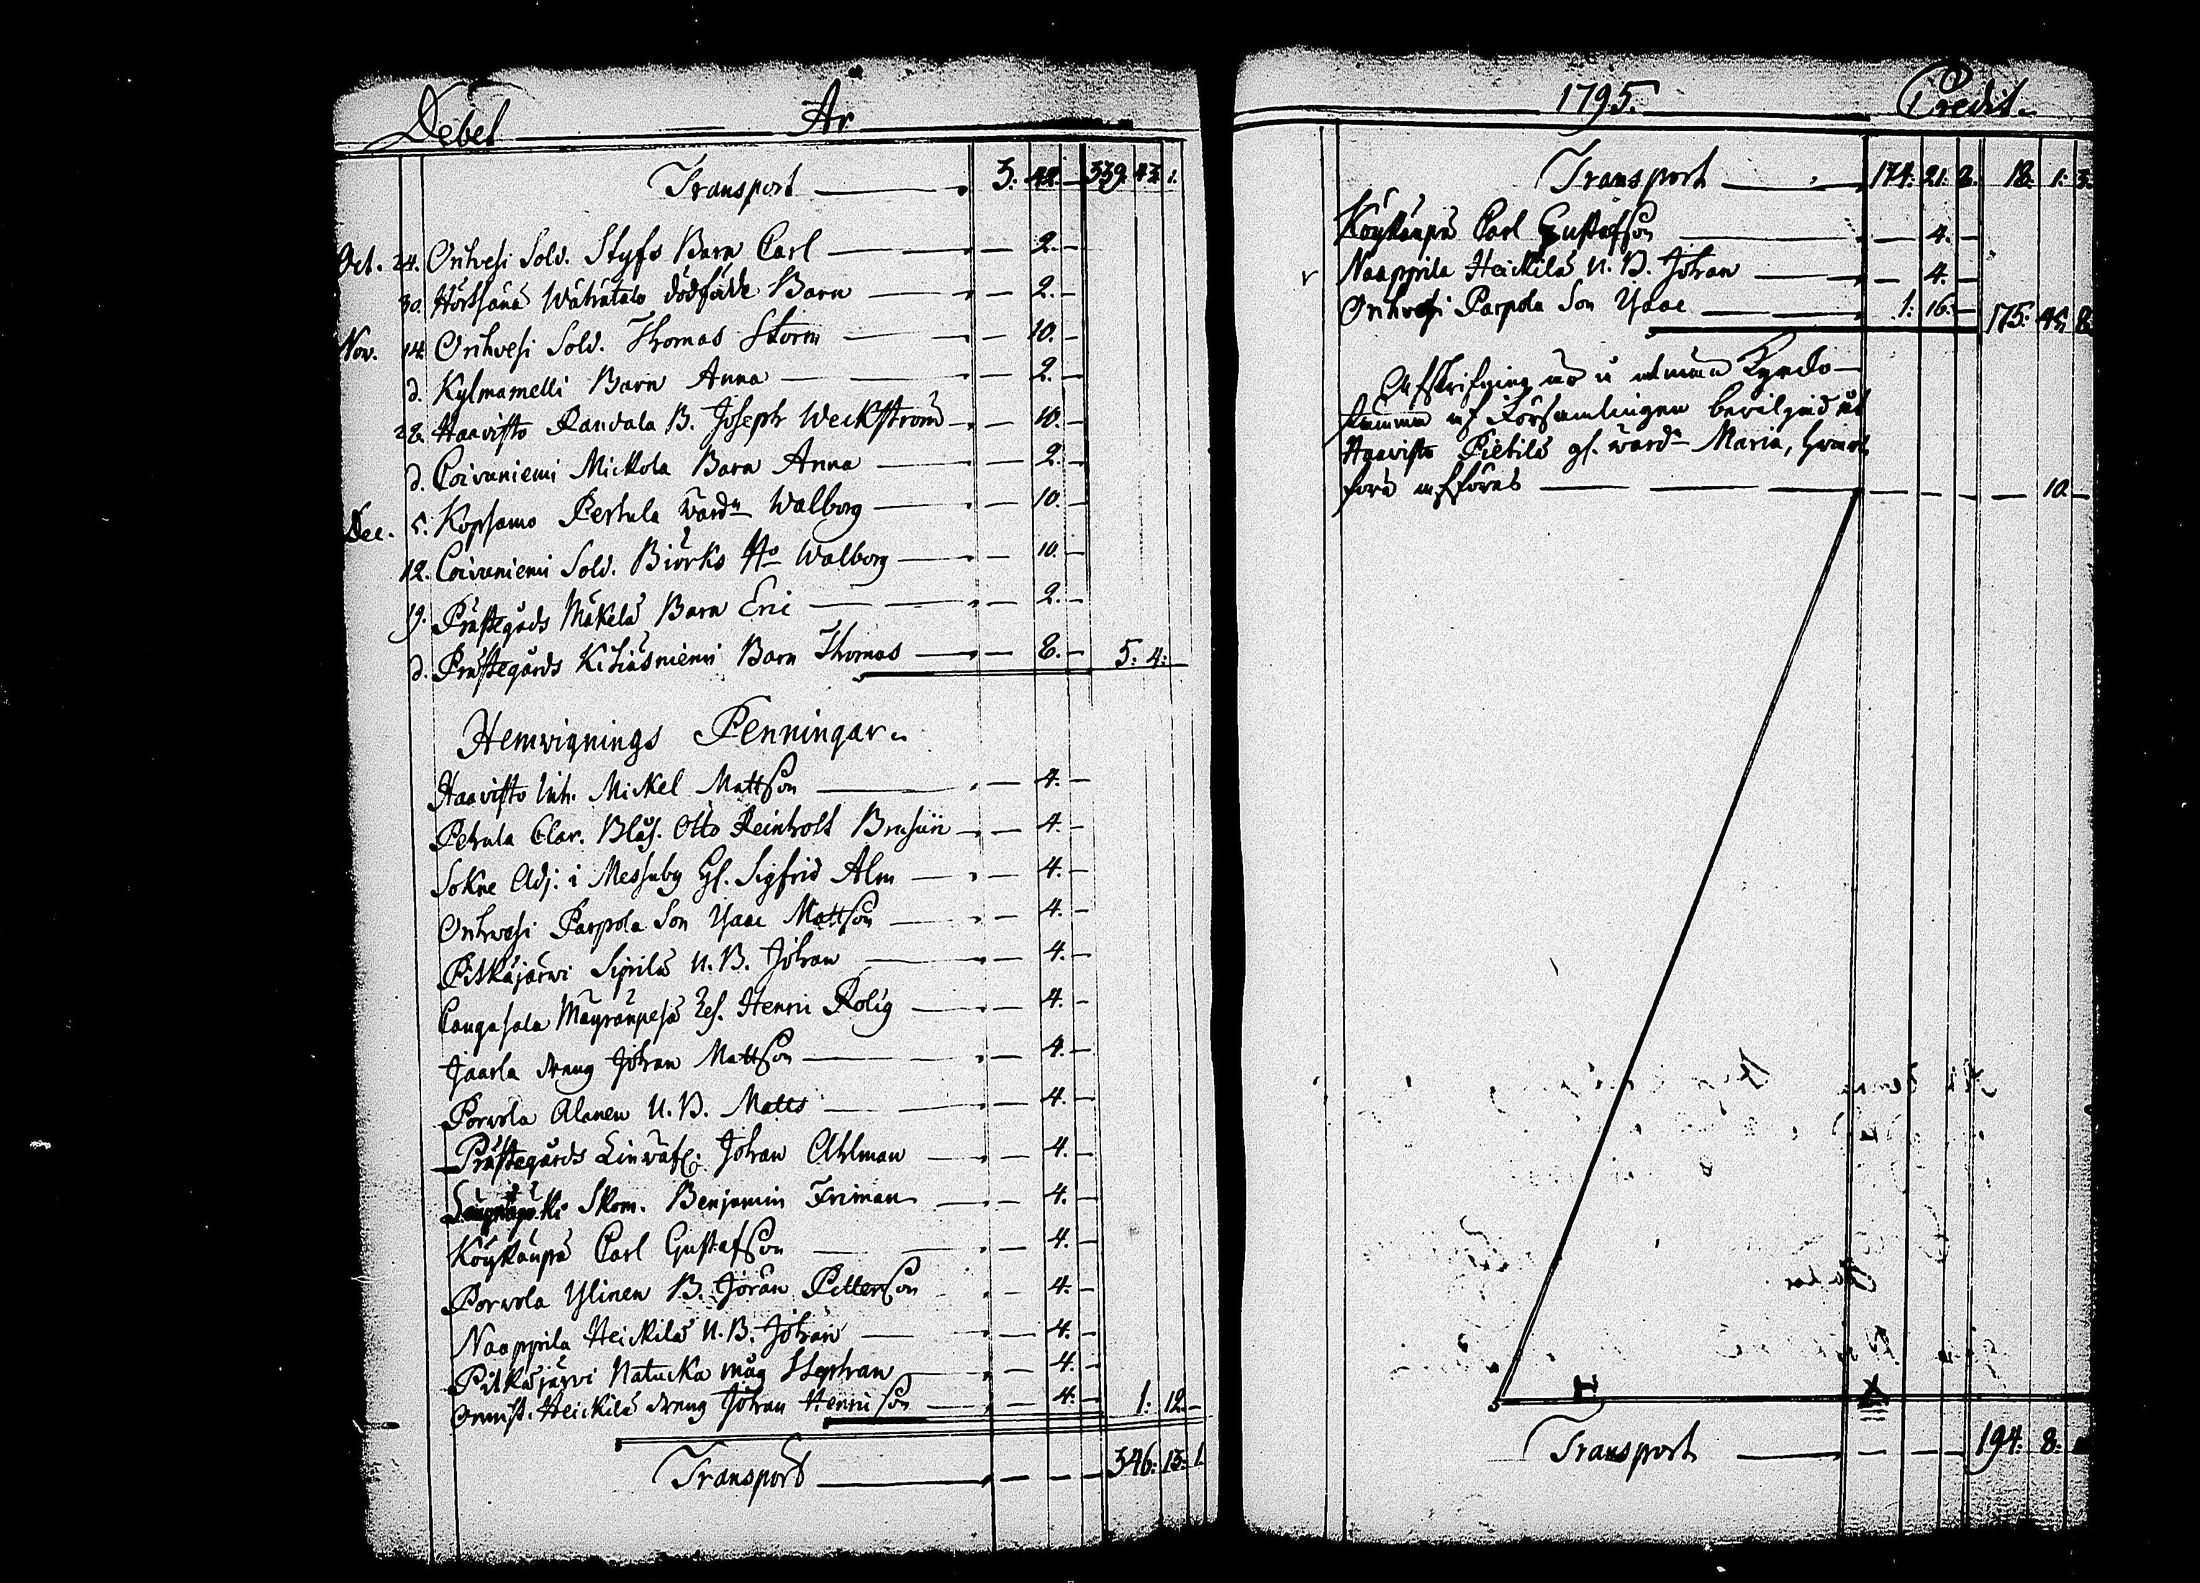 Debet År
Transport 3. 42. — 339. 43. 1.
Oct. 24. Orihvesi Sold. Styfs Barn Carl — 2. —
30. Hörtsänä Wäträtalo dödfödde Barn — 2. —
Nov. 14. Orihvesi Sold. Thomas Storm — 10. —
d. Kylmamelli Barn Anna — 2. —
28. Haavisto Randala B. Joseph Weckström — 10. —
d. Coivuniemi Mickola Barn Anna — 2. —
Dec. 5. Kopsamo Pertula Wärdn Walborg — 10. —
12. Coivuniemi Sold. Biörks Ho Walborg — 10. —
19. Prästegårds Mäkelä Barn Eric — 2. —
d. Prästegårds Kihiäsniemi Barn Thomas — 8. — 5. 4.
Hemvignings Penningar
Haavisto Inh. Mickel Mattson — 4. —
Petula Clar. Blås. Otto Reinholt Brusiin — 4. —
Sokne Adj. i Messuby Gl. Sigfrid Alm — 4. —
Orihvesi Parpola Son Ysaac Mattson — 4. —
Pitkäjärvi Sipilä U. B. Johan — 4. —
Cangasala Mäyränpesä Res. Henric Rolig — 4. —
Jaarla dräng Johan Mattson — 4. —
Porvola Alanen U. B. Matts — 4. —
Prästegårds Linväfv. Johan Ahlman — 4. —
Skom. Benjamin Friman — 4. —
Köykänpä Carl Gustafson — 4. —
Porvola Ylinen B. Jöran Petterson — 4. —
Naappila Heickilä U. B. Johan — 4. —
Pitkäjärvi Natucka måg Stephan — 4. —
Onnist. Heickilä dräng Johan Henricson — 4. — 1. 12. —
Transport — — — 346. 13. 1.
1795. Credit
Transport 174. 21. 8. 18. 1. 5.
Köykänpä Carl Gustafson — 4. —
Naappila Heickilä U. B. Johan — 4. —
Orihvesi Parpola Son Ysaac 1. 16. — 175. 45. 8.
Afskrifning
af Församlingen beviljad åt
Haavisto Pietilä gl. wärdn Maria, hvar-
före afföres — 10. —
Transport — — — 194. 8.